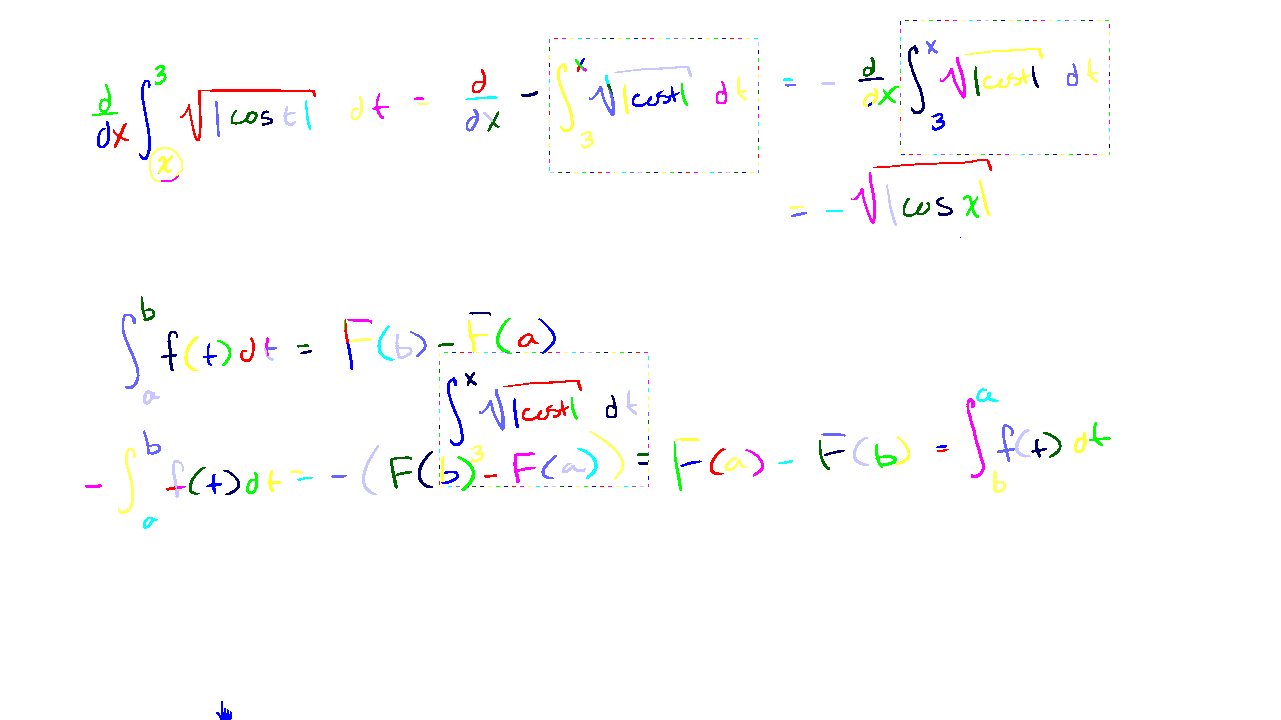 d/dx ∫_x^3 √|cos t| dt = d/dx - ∫_3^x √|cost| dt = - d/dx ∫_3^x √|cost| dt
= - √|cos x|
∫_a^b f(t) dt = F(b) - F(a)
∫_3^x √|cost| dt
- ∫_a^b f(t) dt = - (F(b) - F(a)) = F(a) - F(b) = ∫_b^a f(t) dt